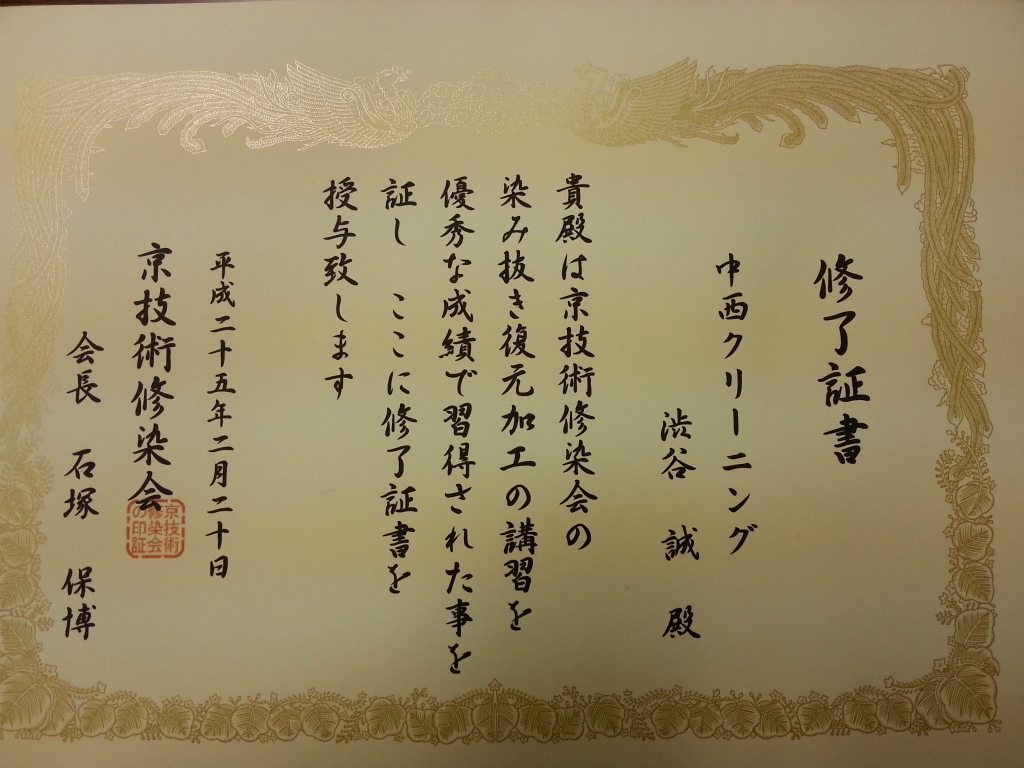 修了証書
中西クリーニング
渋谷 誠 殿
貴殿は京技術修染会の
染み抜き復元加工の講習を
優秀な成績で習得された事を
証し ここに修了証書を
授与致します
平成二十五年二月二十日
京技術修染会
京技術
修染会
の印証
会長 石塚 保博